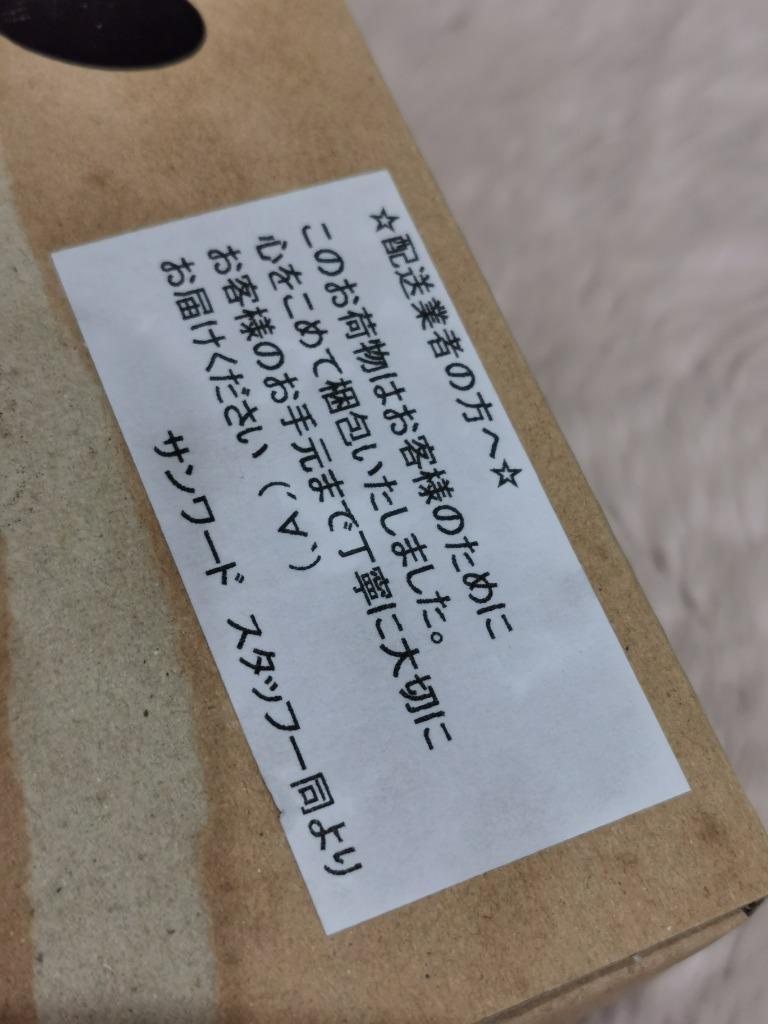 ☆配送業者の方へ☆
このお荷物はお客様のために
心をこめて梱包いたしました。
お客様のお手元まで丁寧に大切に
お届けください（´∀`）
サンワード　スタッフ一同より